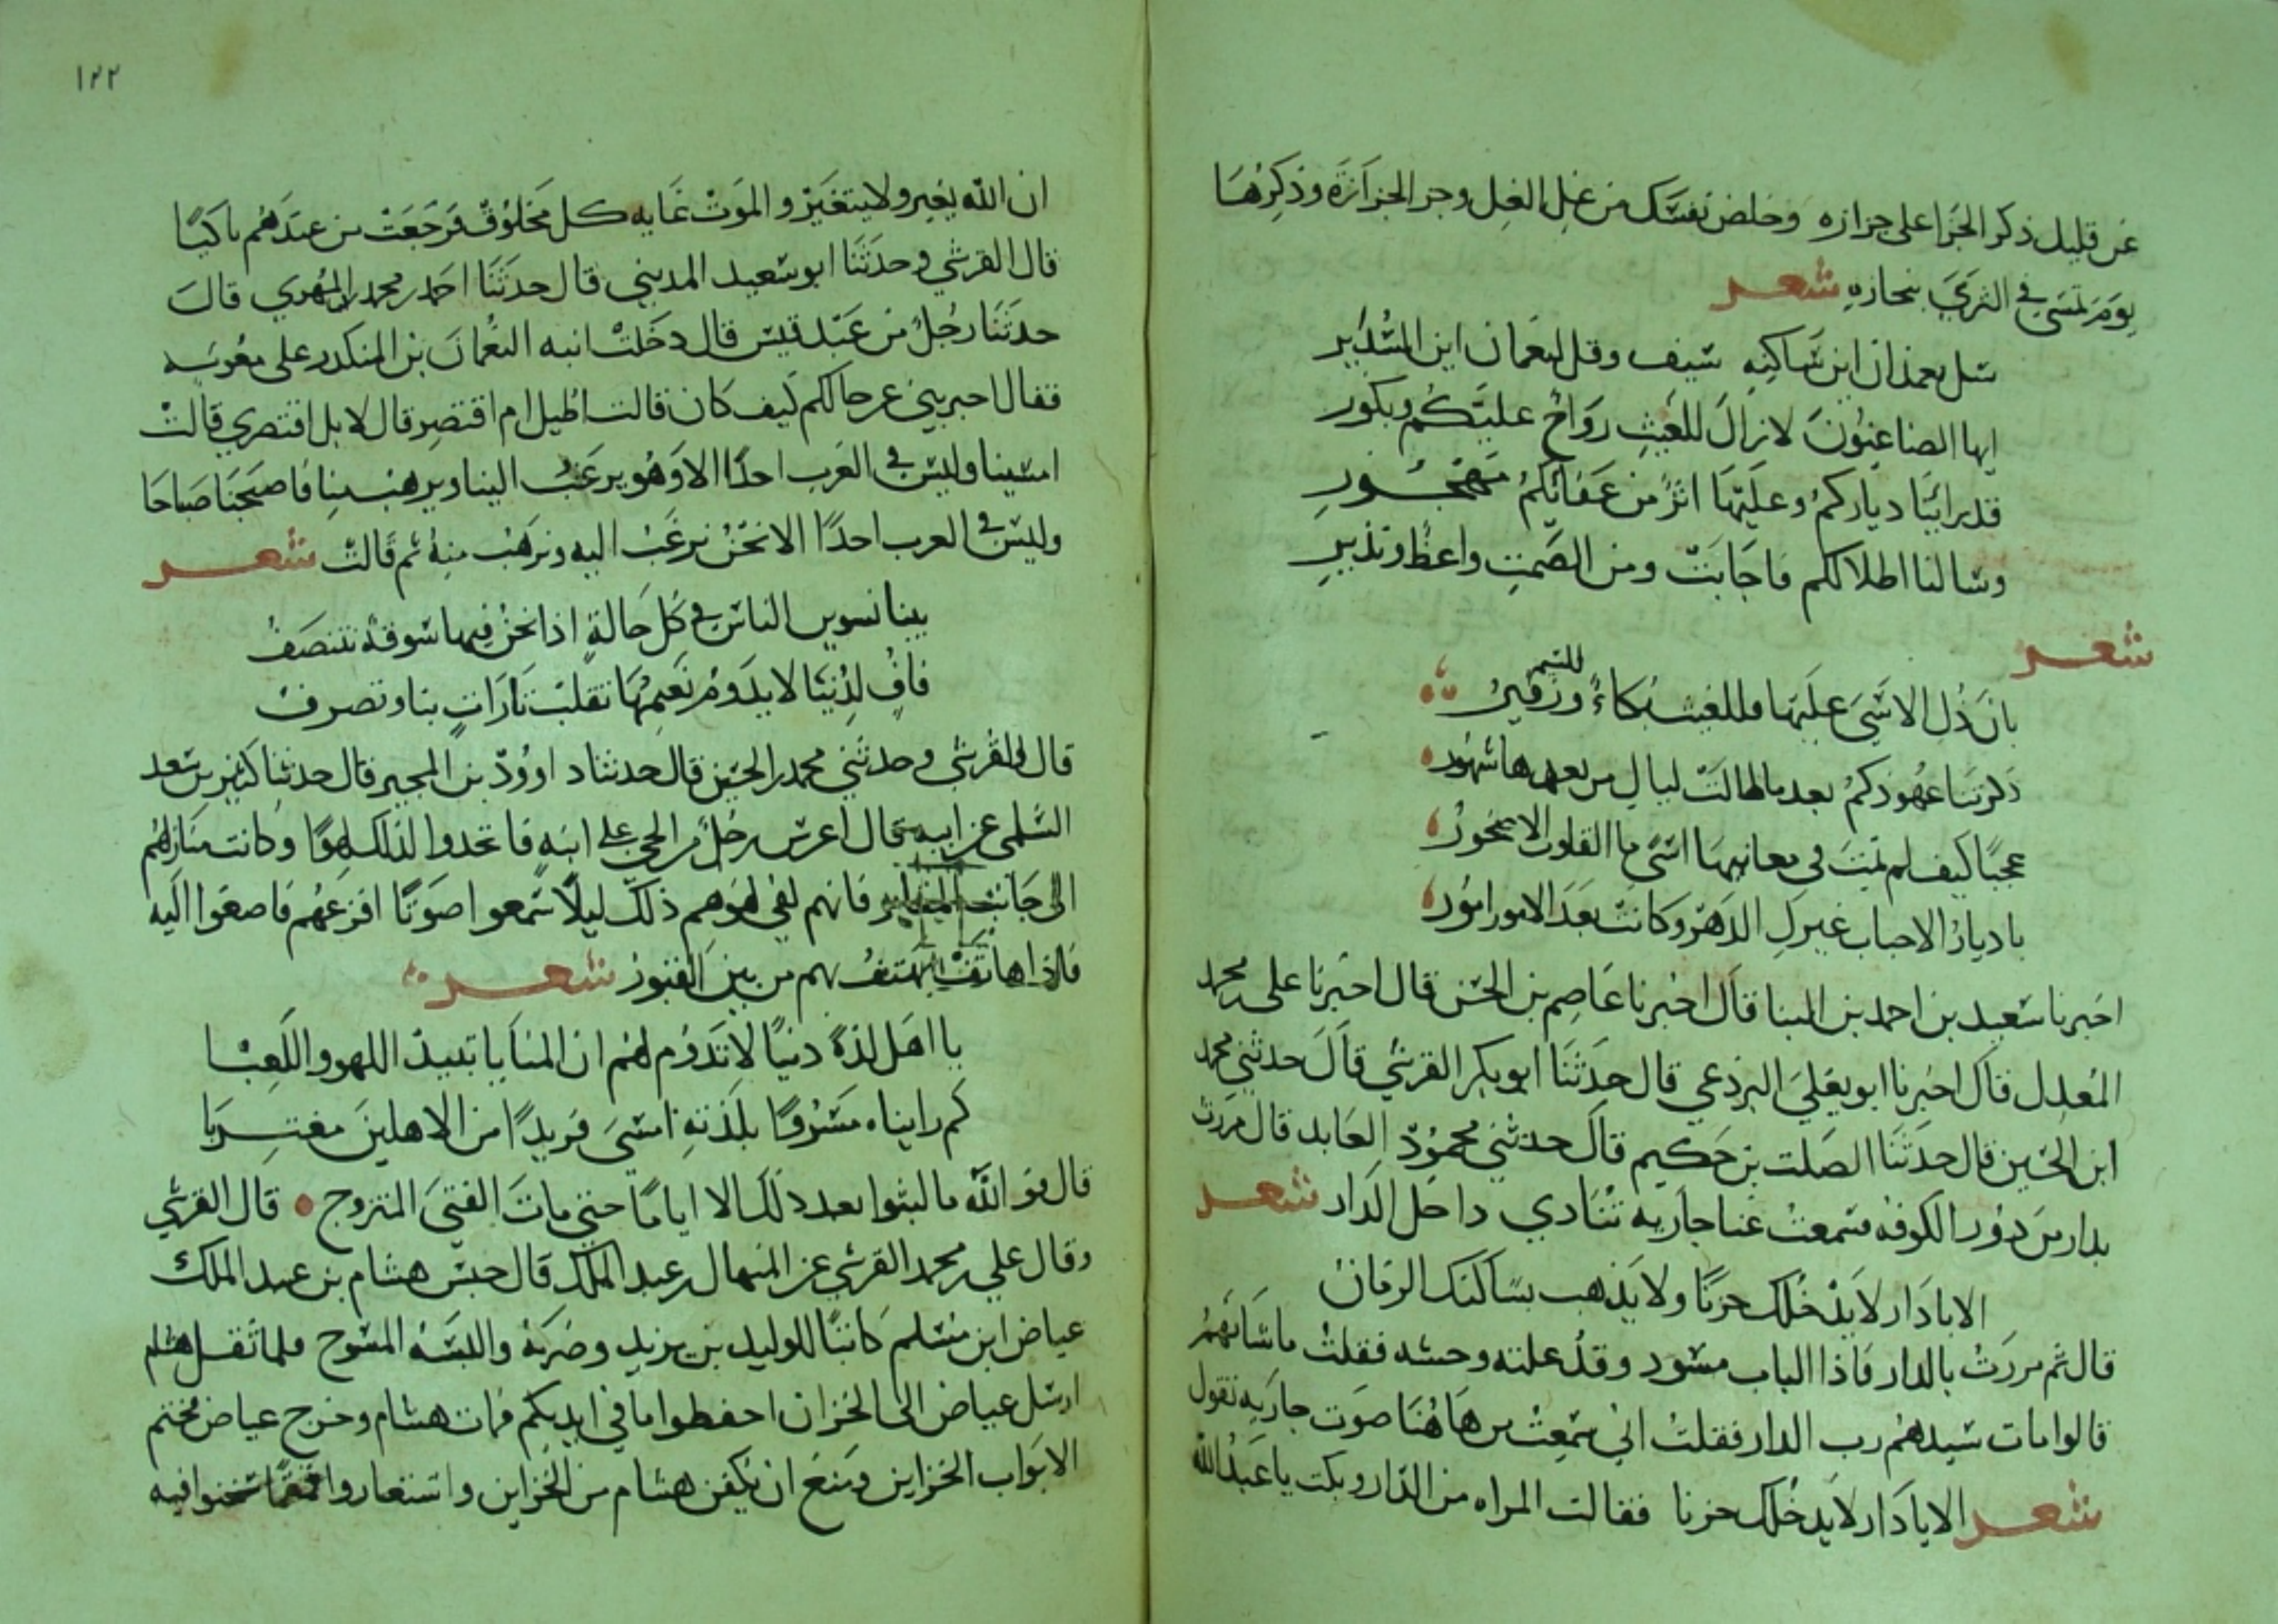 عن قليل ذكر الجزا على جزازه وخلص نفسك من غل الغل وجز الجزازة وذكرها
يوم تمسي في الثري بجنازه شعر
سل بعمدان اين ساكنه سيف وقل لنعمان اين السدير
ايها الضاعنون لا زال للغيث رواح عليكم وبكور
قد راينا دياركم وعليها اثر من عفائكم مهجور
وسالنا اطلالكم فاجابت ومن الصمت واعظ ونذير
شعر
بان ذل الاسى عليها فللغيث بكاء وللنسيم زفير
ذكرتنا عهودكم بعد ما طالت ليال من بعدها شهور
عجبا كيف لم تمت في معانيها اسى ما القلوب الا صخور
يا ديار الاحباب غيرك الدهر وكانت بعد الامور امور
اخبرنا سعيد بن احمد بن البنا قال اخبرنا عاصم بن الحسن قال اخبرنا على بن محمد
المعدل قال اخبرنا ابو يعلي البرذعي قال حدثنا ابو بكر القرشي قال حدثني محمد
ابن الحسين قال حدثنا الصلت بن حكيم قال حدثني محمود العابد قال مررت
بدار من دور الكوفه فسمعت غنا جاريه تنادي داخل الدار شعر
الا يا دار لا يدخلك حزنا ولا يذهب بساكنك الزمان
قال ثم مررت بالدار فاذا الباب مسود وقد علته وحشه فقلت ما شانهم
قالوا مات سيدهم رب الدار فقلت اني سمعت من هاهنا صوت جاريه تقول
شعر الا يا دار لا يدخلك حزنا فقالت المراه من الدار وبكت يا عبد الله
١٢٢
ان الله يغير ولا يتغير والموت غايه كل مخلوق فرجعت من عندهم باكيا
قال القرشي وحدثنا ابو سعيد المديني قال حدثنا احمد بن محمد المهري قال
حدثنا رجل من عبد قيس قال دخلت ابنه النعمان بن المنكدر على معويه
فقال اخبريني عن حالكم كيف كان قالت اطيل ام اقتصر قال لا بل اقتصري قالت
امسينا وليس في العرب احدا الا وهو يرغب الينا ويرهب منا فاصبحنا صباحا
وليس في العرب احدا الا نحن نرغب اليه ونرهب منه ثم قالت شعر
بينا نسوس الناس في كل حالة اذا نحن فيها سوقة نتنصف
فاف لدنيا لا يدوم نعيمها تقلب تارات بنا وتصرف
قال القرشي وحدثني محمد بن الحسين قال حدثنا داوود بن المحبر قال حدثنا كثير بن سعد
السلمي عن ابيه قال اعرس رجل من الحي على ابنه فاتخدوا لذلك لهوا وكانت منازلهم
الى جانب المقابر فانهم لفي لهوهم ذلك ليلا سمعوا صوتا افزعهم فاصغوا اليه
فاذا هاتف يهتف بهم من بين القبور شعر
يا اهل لذة دنيا لا تدوم لهم ان المنايا تبيد اللهو واللعبا
كم راينا مسرورا بلذته امسى فريدا من الاهلين مغتربا
قال فو الله ما لبثوا بعد ذلك الا اياما حتى مات الفتى المتزوج قال القرشي
وقال علي بن محمد القرشي عن المنهال بن عبد الملك قال حبس هشام بن عبد الملك
عياض ابن مسلم كاتبا للوليد بن يزيد وضربه والبسه المسوح فلما ثقل هشام
ارسل عياض الى الخزان احفظوا ما في ايديكم فمات هشام وخرج عياض فختم
الابواب الخزاين ومنع ان يكفن هشام من الخزاين واستعاروا قمقما سخنوا فيه